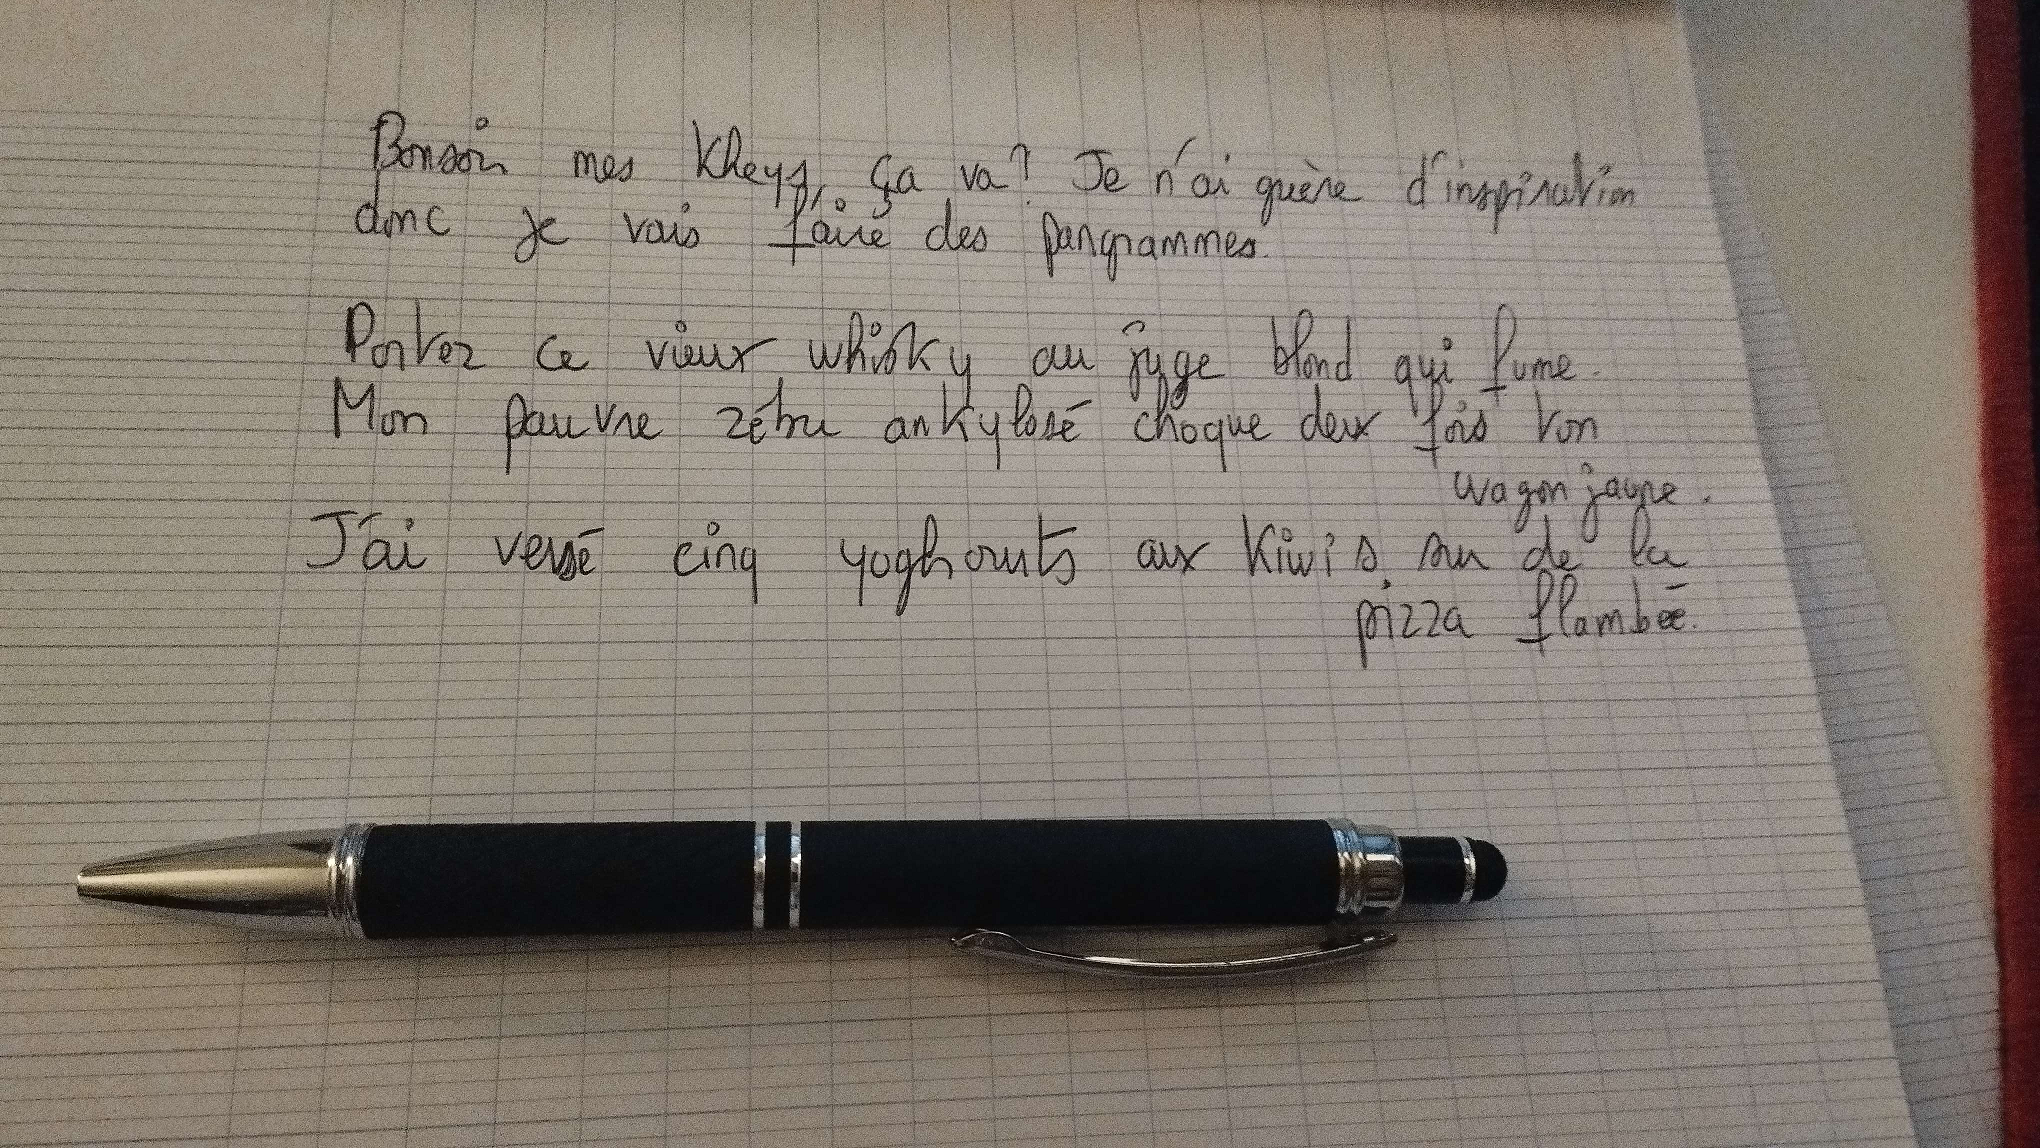 Bonsoir mes kheys, ça va? Je n'ai guère d'inspiration
donc je vais faire des pangrammes.
Portez ce vieux whisky au juge blond qui fume.
Mon pauvre zébu ankylosé choque deux fois ton
wagon jaune.
J'ai versé cinq yoghourts aux kiwis sur de la
pizza flambée.